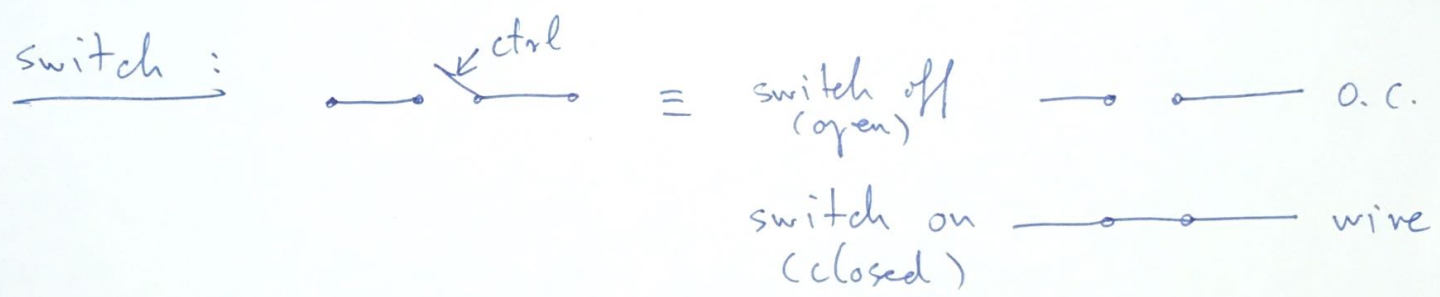 switch :
ctrl
≡ switch off
(open)
O.C.
switch on
(closed)
wire